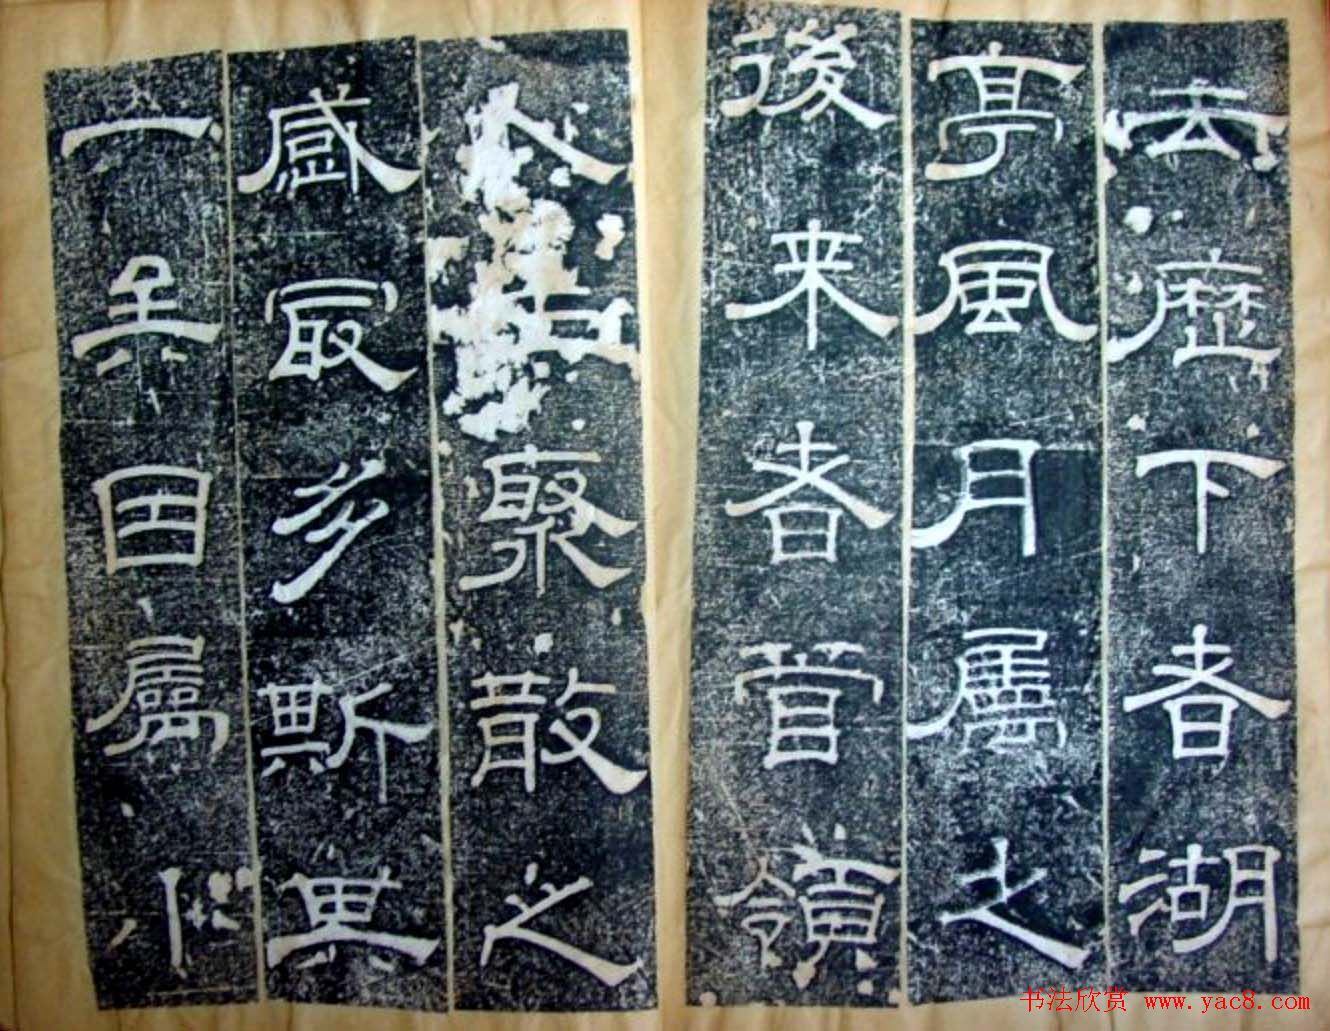 去歷下者湖
亭風月屬之
後来者管領
聚散之
感最多斯異
一年因屬
书法欣赏 www.yac8.com